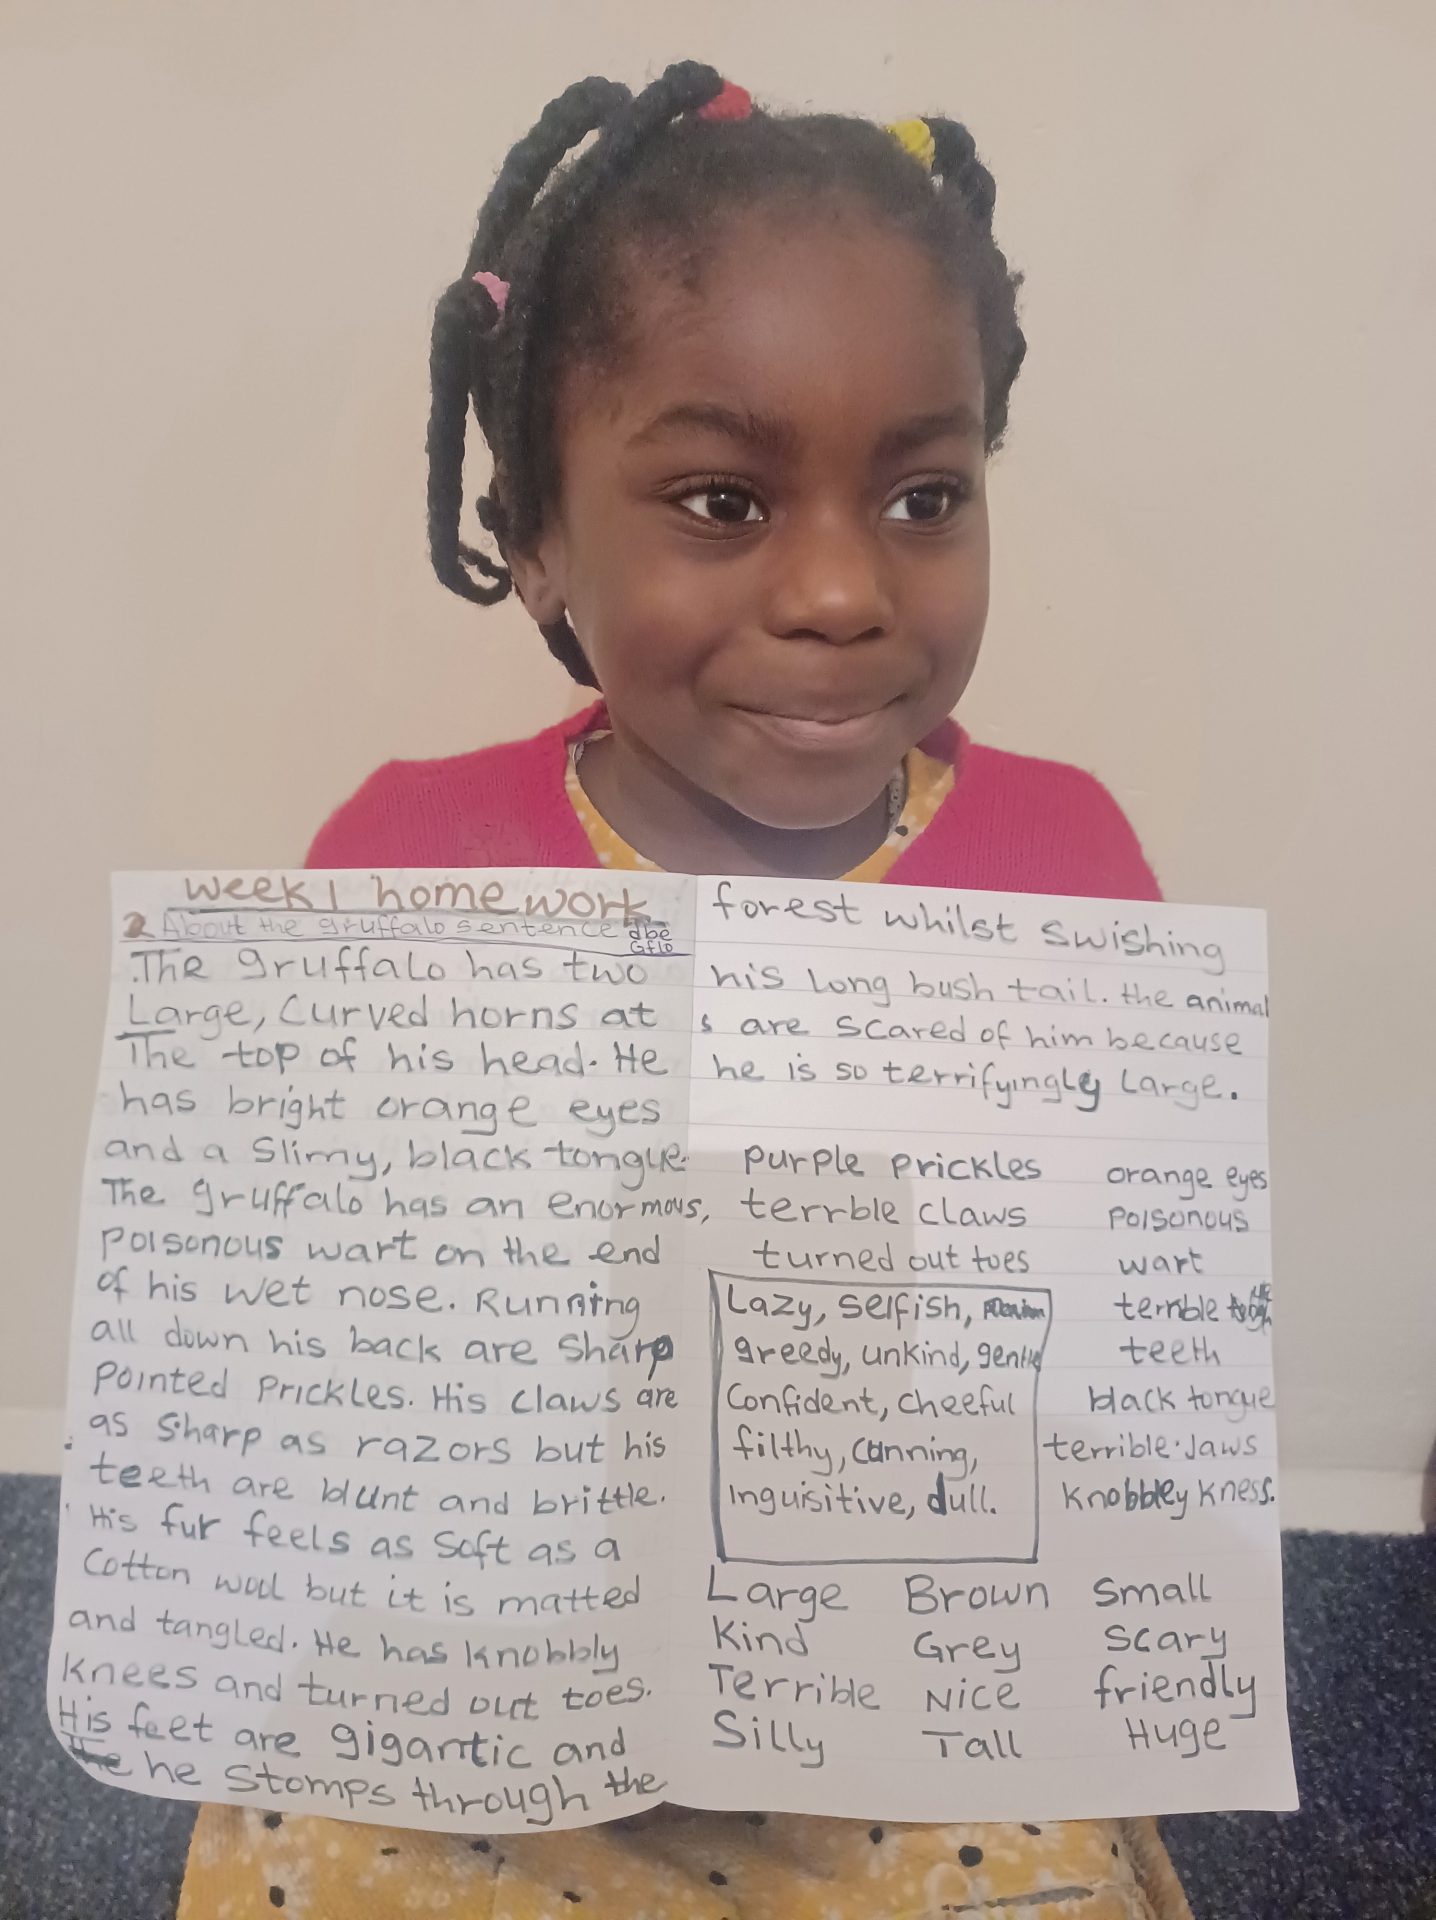 week 1 homework
2 About the gruffalo sentence
The gruffalo has two
Large, Curved horns at
The top of his head. He
has bright orange eyes
and a Slimy, black tongue.
The gruffalo has an enormous,
Poisonous wart on the end
of his wet nose. Running
all down his back are Sharp
Pointed Prickles. His Claws are
as Sharp as razors but his
teeth are blunt and brittle.
His fur feels as Soft as a
Cotton wool but it is matted
and tangled. He has knobbly
Knees and turned out toes.
His feet are gigantic and
he Stomps through the
forest whilst Swishing
his long bush tail. the animal
s are Scared of him because
he is so terrifyingly Large.
purple prickles
terrble claws
turned out toes
orange eyes
Poisonous
wart
terrible
teeth
black tongue
terrible Jaws
Knobbley kness.
Lazy, Selfish,
greedy, unkind, gentle
Confident, cheeful
filthy, cunning,
Inguisitive, dull.
Large Brown Small
Kind Grey Scary
Terrible Nice friendly
Silly Tall Huge